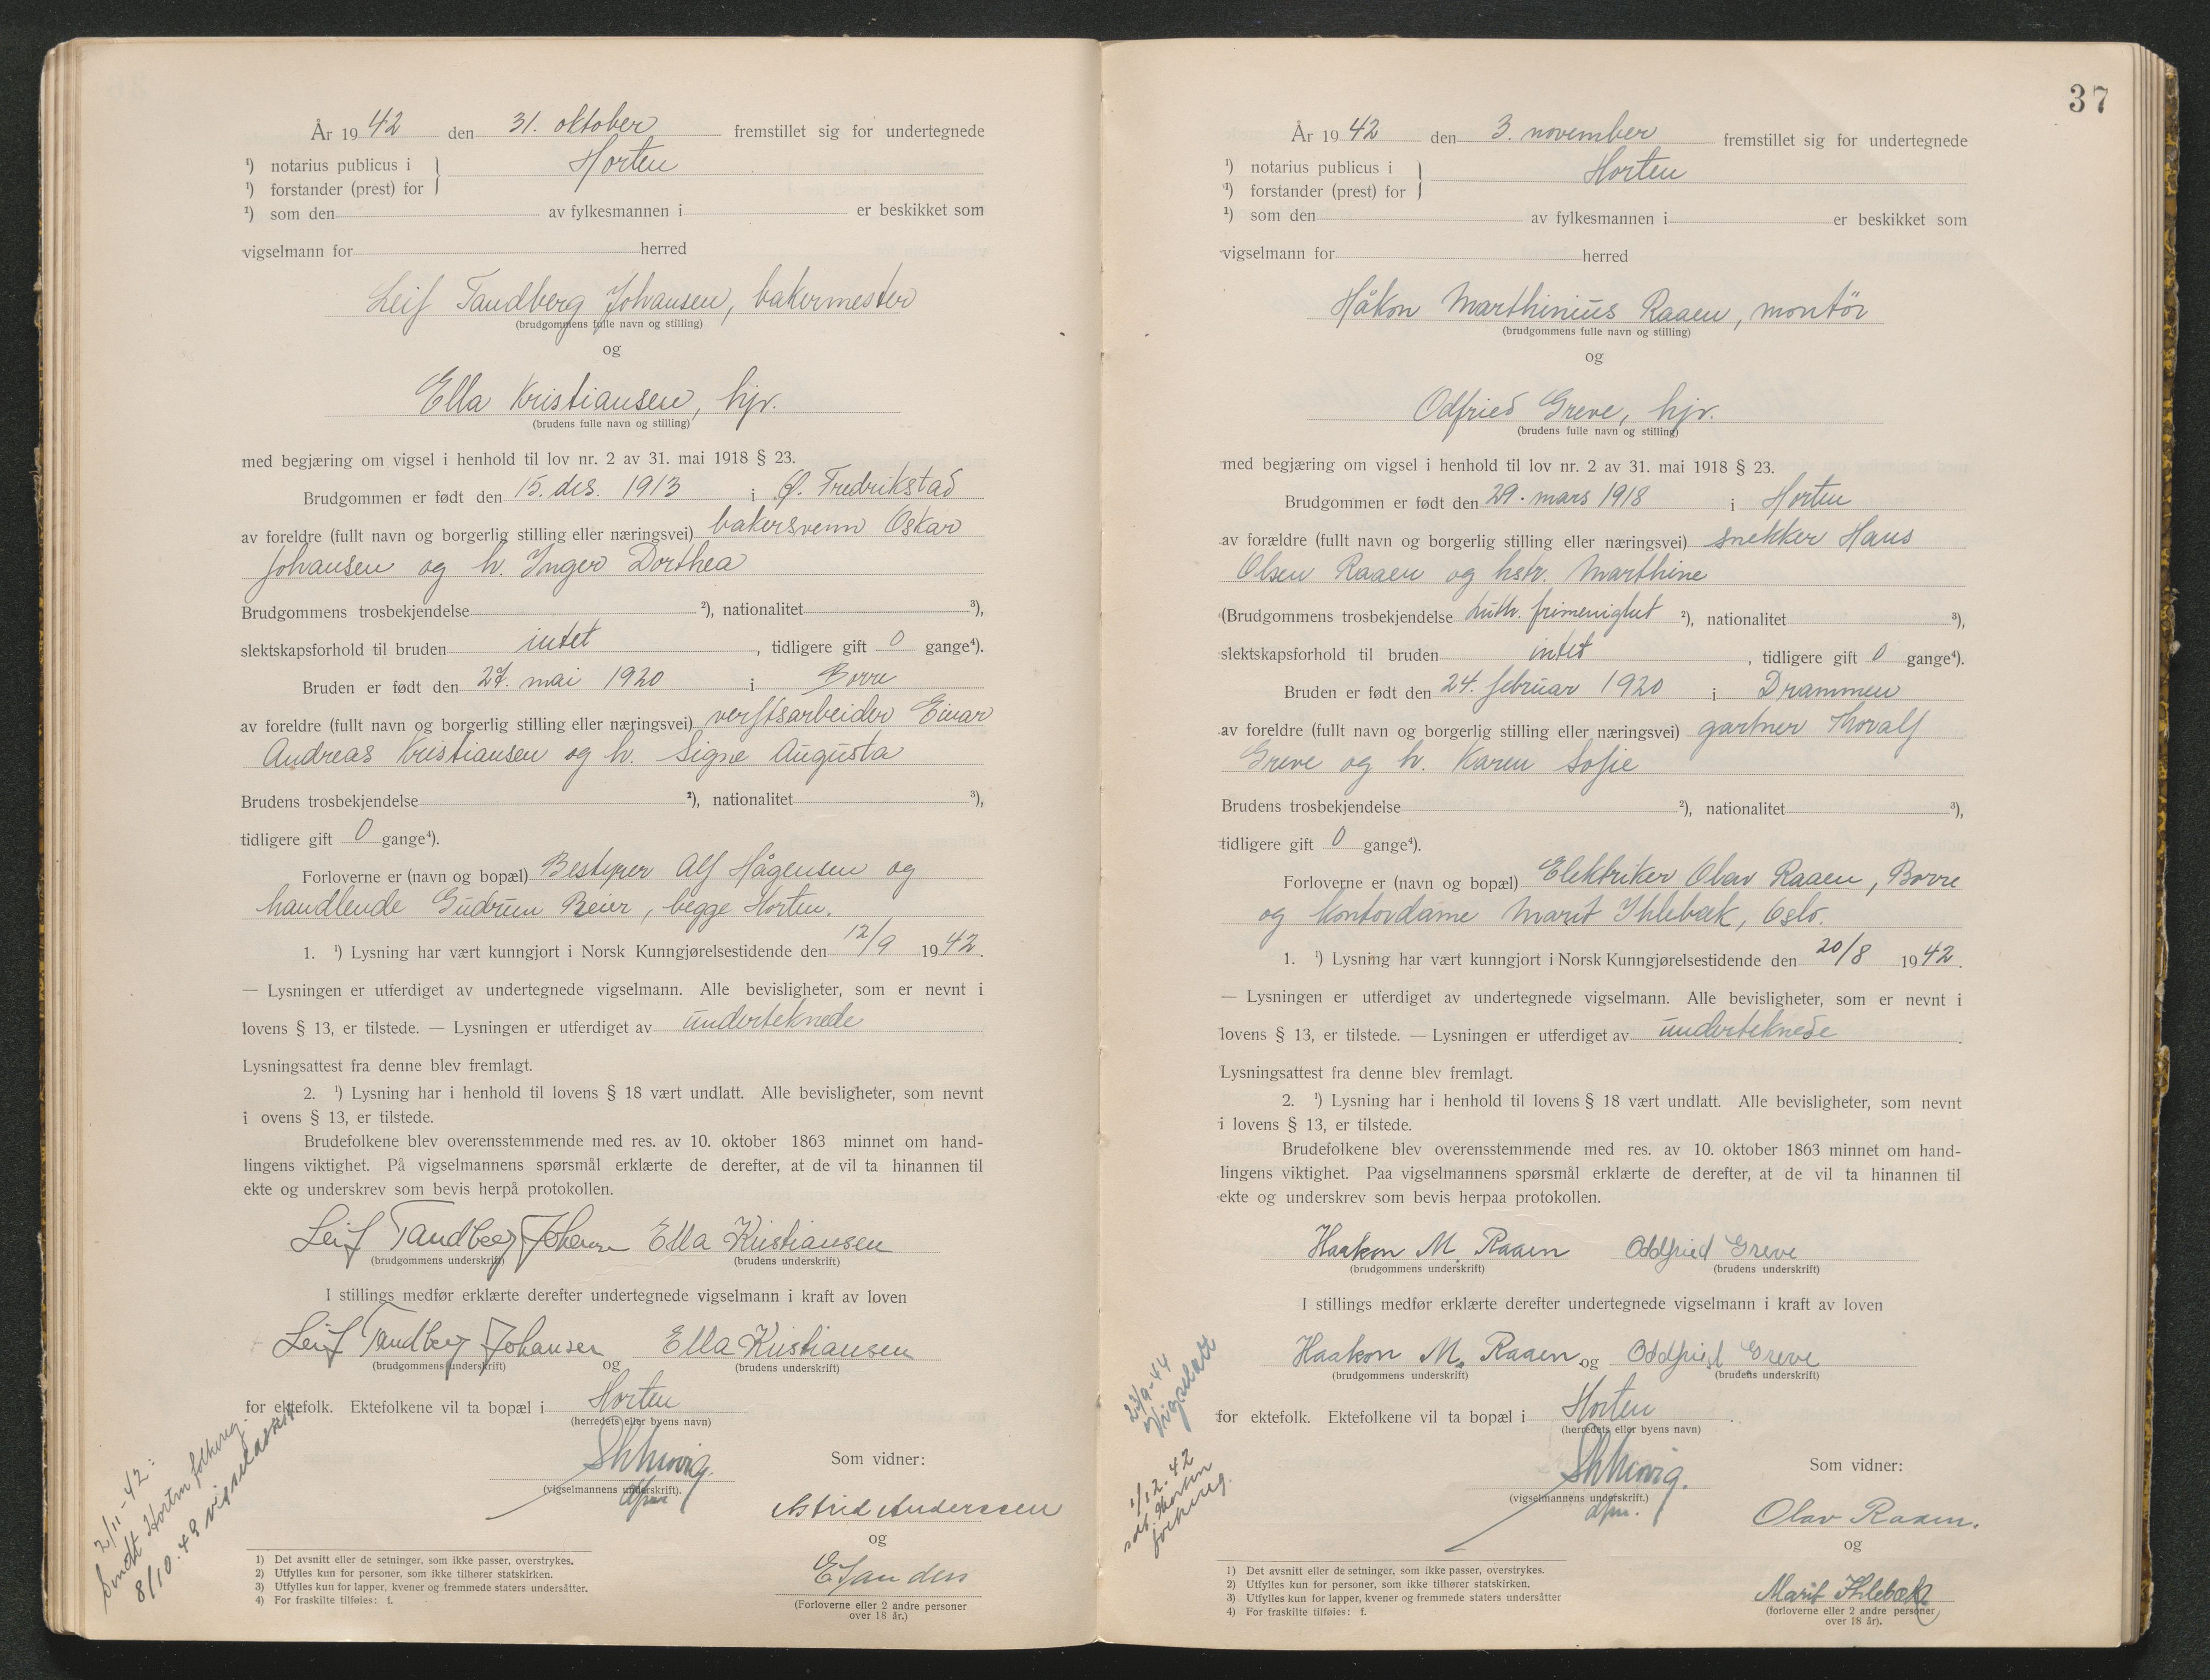 År 1942 den 31. oktober fremstillet sig for undertegnede
¹) notarius publicus i } Horten
¹) forstander (prest) for
¹) som den av fylkesmannen i er beskikket som
vigselmann for herred
Leif Tandberg Johansen, bakermester
(brudgommens fulle navn og stilling)
og
Ella Kristiansen, hjv.
(brudens fulle navn og stilling)
med begjæring om vigsel i henhold til lov nr. 2 av 31. mai 1918 § 23.
Brudgommen er født den 15. des. 1913 i Ø. Fredrikstad
av foreldre (fullt navn og borgerlig stilling eller næringsvei) bakersvenn Oskar
Johansen og h. Inger Dorthea
Brudgommens trosbekjendelse ²), nationalitet ³),
slektskapsforhold til bruden intet, tidligere gift 0 gange⁴).
Bruden er født den 27. mai 1920 i Borre
av foreldre (fullt navn og borgerlig stilling eller næringsvei) verftsarbeider Einar
Andreas Kristiansen og h. Signe Augusta
Brudens trosbekjendelse ²), nationalitet ³),
tidligere gift 0 gange⁴).
Forloverne er (navn og bopæl) Bestyrer Alf Hågensen og
handlende Gudrun Beier, begge Horten.
1. ¹) Lysning har vært kunngjort i Norsk Kunngjørelsestidende den 12/9 1942.
— Lysningen er utferdiget av undertegnede vigselmann. Alle bevisligheter, som er nevnt i
lovens § 13, er tilstede. — Lysningen er utferdiget av underteknede
Lysningsattest fra denne blev fremlagt.
2. ¹) Lysning har i henhold til lovens § 18 vært undlatt. Alle bevisligheter, som nevnt
i ovens § 13, er tilstede.
Brudefolkene blev overensstemmende med res. av 10. oktober 1863 minnet om hand-
lingens viktighet. På vigselmannens spørsmål erklærte de derefter, at de vil ta hinannen til
ekte og underskrev som bevis herpå protokollen.
Leif Tandberg Johansen Ella Kristiansen
(brudgommens underskrift) (brudens underskrift)
I stillings medfør erklærte derefter undertegnede vigselmann i kraft av loven
Leif Tandberg Johansen og Ella Kristiansen
(brudgommens underskrift) (brudens underskrift)
for ektefolk. Ektefolkene vil ta bopæl i Horten
(herredets eller byens navn)
Som vidner:
(vigselmannens underskrift).
Astrid Anderssen
og
(Forloverne eller 2 andre personer
over 18 år.)
2/11-42:
Sendt Horten folkereg.
8/10.49 vigselsattest
1) Det avsnitt eller de setninger, som ikke passer, overstrykes.
2) Utfylles kun for personer, som ikke tilhører statskirken.
3) Utfylles kun for lapper, kvener og fremmede staters undersåtter.
4) For fraskilte tilføies: f.
37
År 1942 den 3. november fremstillet sig for undertegnede
¹) notarius publicus i } Horten
¹) forstander (prest) for
¹) som den av fylkesmannen i er beskikket som
vigselmann for herred
Håkon Marthinius Raaen, montör
(brudgommens fulle navn og stilling)
og
Odfried Greve, hjv.
(brudens fulle navn og stilling)
med begjæring om vigsel i henhold til lov nr. 2 av 31. mai 1918 § 23.
Brudgommen er født den 29. mars 1918 i Horten
av forældre (fullt navn og borgerlig stilling eller næringsvei) snekker Hans
Olsen Raaen og hstr. Marthine
(Brudgommens trosbekjendelse Luth. frimenighet ²), nationalitet ³),
slektskapsforhold til bruden intet, tidligere gift 0 gange⁴).
Bruden er født den 24. februar 1920 i Drammen
av foreldre (fullt navn og borgerlig stilling eller næringsvei) gartner Thoralf
Greve og h. Karen Sofie
Brudens trosbekjendelse ²), nationalitet ³),
tidligere gift 0 gange⁴).
Forloverne er (navn og bopæl) Elektriker Olav Raaen, Borre
og kontordame Marit Ihlebæk, Oslo.
1. ¹) Lysning har vært kunngjort i Norsk Kunngjørelsestidende den 20/8 1942.
— Lysningen er utferdiget av undertegnede vigselmann. Alle bevisligheter, som er nevnt i
lovens § 13, er tilstede. — Lysningen er utferdiget av underteknede
Lysningsattest fra denne blev fremlagt.
2. ¹) Lysning har i henhold til lovens § 18 vært undlatt. Alle bevisligheter, som nevnt
i lovens § 13, er tilstede.
Brudefolkene blev overensstemmende med res. av 10. oktober 1863 minnet om hand-
lingens viktighet. Paa vigselmannens spørsmål erklærte de derefter, at de vil ta hinannen til
ekte og underskrev som bevis herpaa protokollen.
Haakon M. Raaen Oddfried Greve
(brudgommens underskrift) (brudens underskrift)
I stillings medfør erklærte derefter undertegnede vigselmann i kraft av loven
Haakon M. Raaen og Oddfried Greve
(brudgommens underskrift) (brudens underskrift)
for ektefolk. Ektefolkene vil ta bopæl i Horten
(herredets eller byens navn)
Som vidner:
(vigselmannens underskrift.)
Olav Raaen.
og
Marit Ihlebæk
(forloverne eller 2 andre personer
over 18 år).
Vigselsatt
1/12-42
Horten
folkereg.
1) Det avsnitt eller de setninger, som ikke passer, overstrykes.
2) Utfylles kun for personer, som ikke tilhører statskirken.
3) Utfylles kun for lapper, kvener og fremmede staters undersåtter
4) For fraskilte tilføies: f.